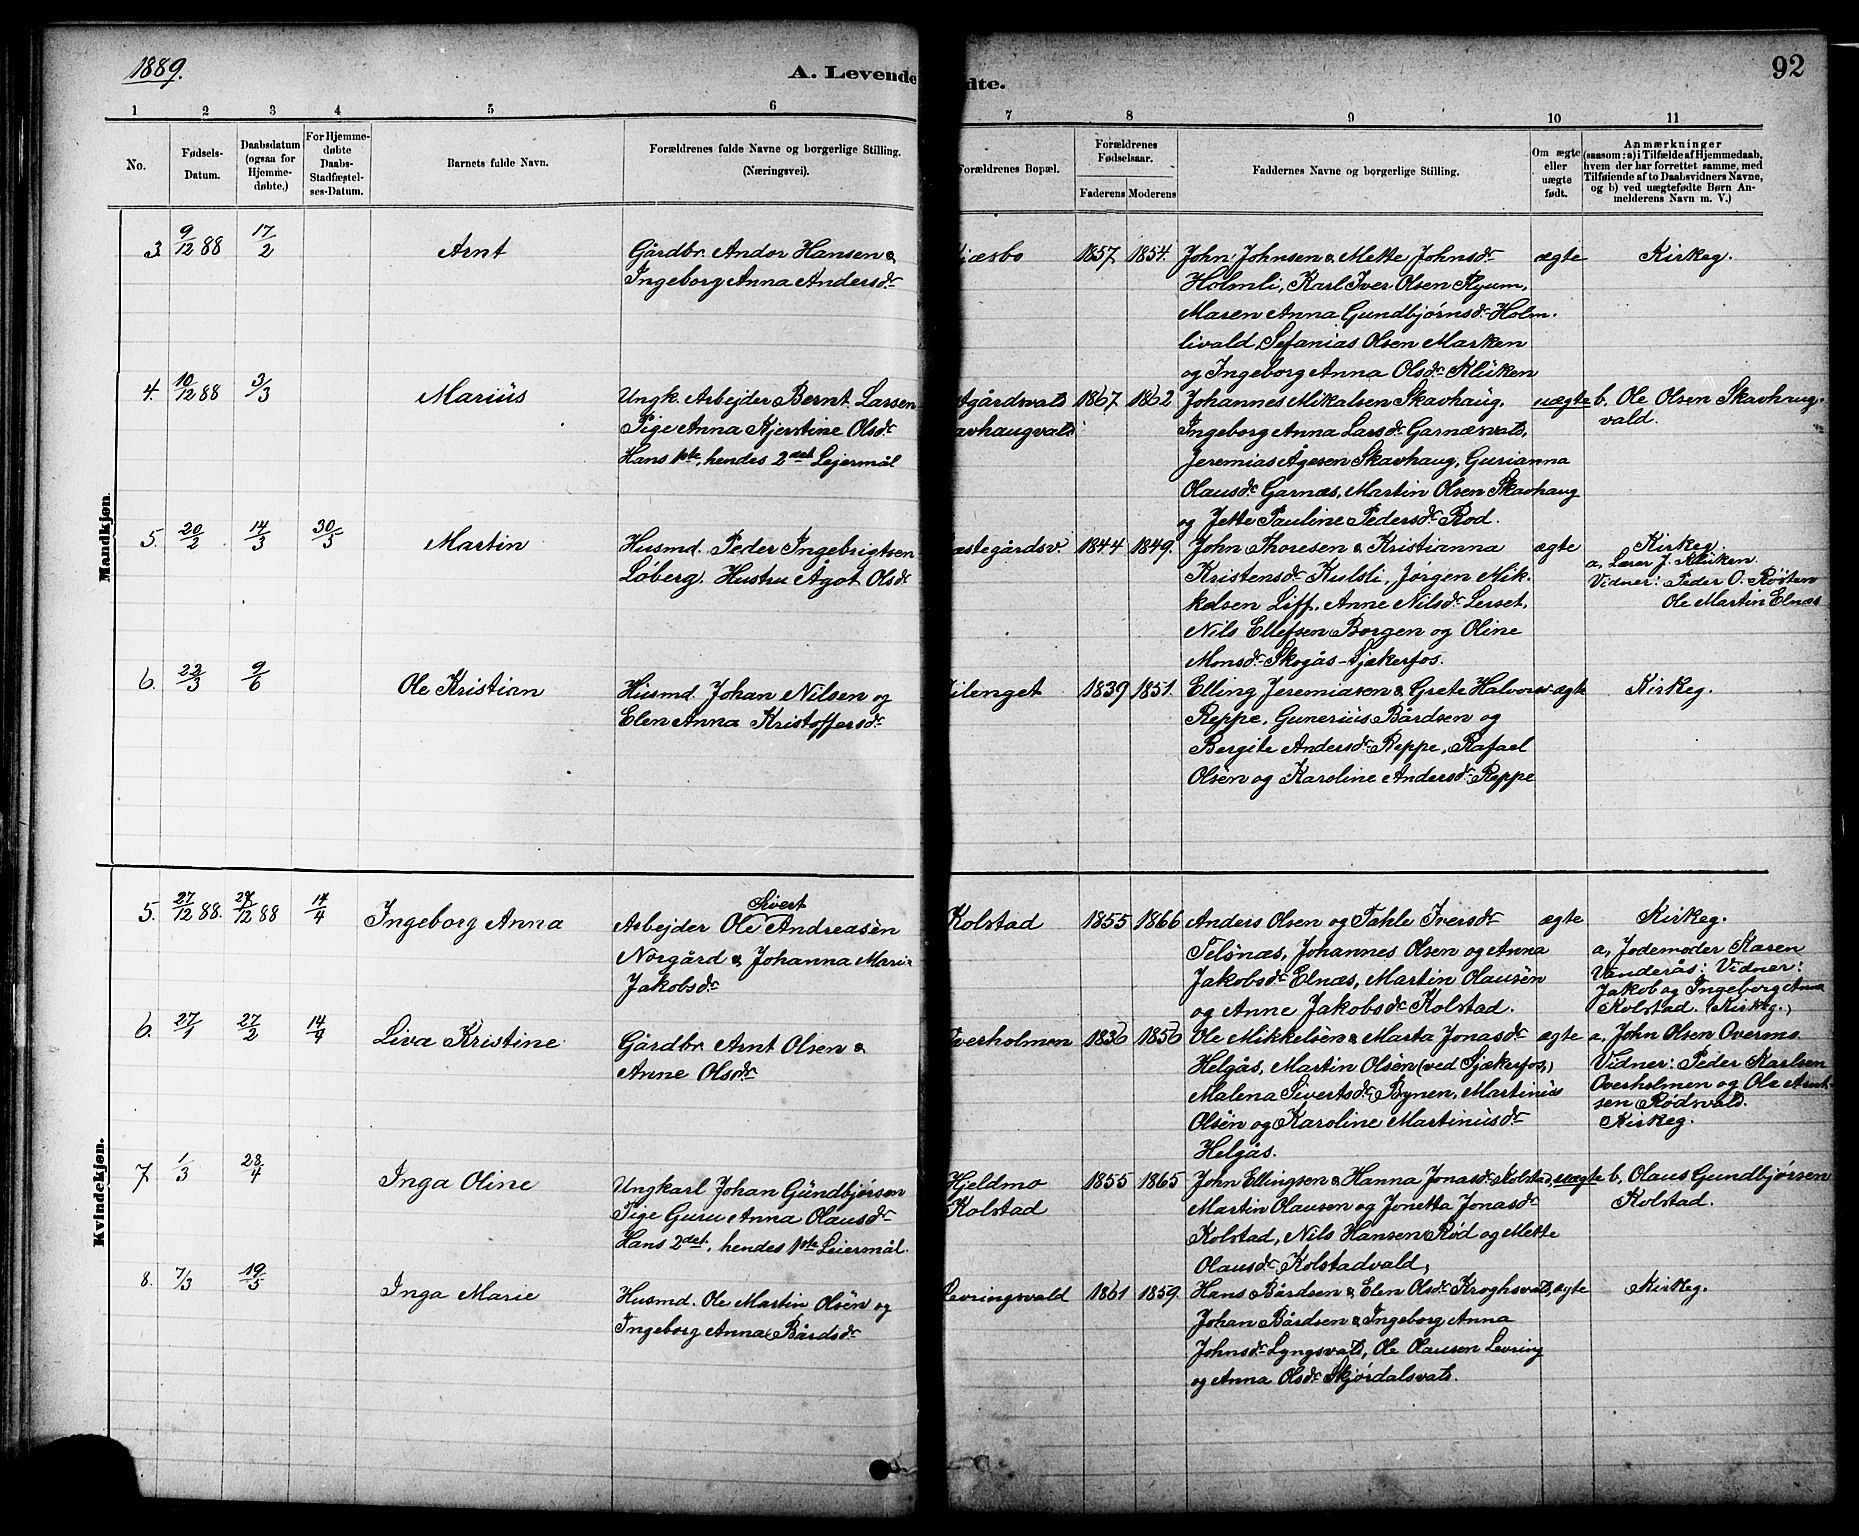 1889.
A. Levende
dte.
92
1 2 3 4 5 6 7 8 9 10 11
No.
Fødsels-
Datum.
Daabsdatum
(ogsaa for
Hjemme-
døbte,)
For Hjemme-
døbte
Daabs-
Stadfæstel-
ses-Datum.
Barnets fulde Navn.
Forældrenes fulde Navne og borgerlige Stilling.
(Næringsvei).
Forældrenes Bopæl.
Forældrenes
Fødselsaar.
Faderens Moderens
Faddernes Navne og borgerlige Stilling.
Om ægte
eller
uægte
født.
Anmærkninger
(saasom: a) i Tilfælde af Hjemmedaab,
hvem der har forrettet samme, med
Tilføiende af to Daabsvidners Navne,
og b) ved uægtefødte Børn An-
melderens Navn m. V.)
Mandkjøn.
3. 9/12 88 17/2 Arnt
Gårdbr. Andor Hansen &
Ingeborg Anna Andersdr
1857 1854.
John Johnsen & Mette Johnsdr
Holmli, Karl Iver Olsen Flyum,
Maren Anna Gundbjørnsdr Holm-
livald Sefanias Olsen Marken
og Ingeborg Anna Olsdr Klüken
ægte
Kirkeg.
4. 10/12 88 3/3 Marius
Ungk. Arbejder Bernt Larsen
Pige Anna Kjerstine Olsdr
Hans 1ste, hendes 2det Lejermål
avhaugvald
1867 1862
Johannes Mikalsen Skavhaug,
Ingeborg Anna Larsdr Garnæsvald,
Jeremias Ågesen Skavhaug, Gurianna
Olausdr Garnæs, Martin Olsen Skavhaug
og Jette Pauline Pedersdr Rod.
uægte
b. Ole Olsen Skavhaug-
vald.
5. 20/2 14/3 30/5 Martin
Husmd. Peder Ingebrigtsen
Løberg. Hustru Ågot Olsdr
æstegårdsv.
1844 1849.
John Thoresen & Kristianna
Kristensdr Kulsli, Jørgen Mik-
kelsen Liff, Anne Nilsdr Lerset,
Nils Ellefsen Borgen og Oline
Monsdr Skogås-Sjækerfos.
ægte
Kirkeg.
a, Lærer J. Klüken
Vidner: Peder O. Røsten
Ole Martin Elnæs
6. 22/3 9/6 Ole Kristian
Husmd. Johan Nilsen og
Elen Anna Kristoffersdr
ilenget
1839 1851.
Elling Jeremiasen & Grete Halvorsdr
Reppe, Gunerius Bårdsen og
Bergite Andersdr Reppe, Rafael
Olsen og Karoline Andersdr Reppe
ægte
Kirkeg.
Kvindekjøn.
5. 27/12 88. 27/12 88 14/4 Ingeborg Anna
Sivert
Arbejder Ole Andreasen
Norgård & Johanna Marie
Jakobsdr
Kolstad
1855 1866
Anders Olsen og Tahle Iversdr
Telønæs, Johannes Olsen og Anna
Jakobsdr Elnæs, Martin Olausen
og Anne Jakobsdr Kolstad.
ægte
Kirkeg.
a, Jodemoder Karen
Vanderås; Vidner:
Jakob og Ingeborg Anna
Kolstad. (Kirkeg.)
6. 27/1 27/2 14/4 Liva Kristine
Gårdbr. Arnt Olsen &
Anne Olsdr
verholmen
1836 1856
Ole Mikkelsen & Marta Jonasdr
Helgås, Martin Olsen (ved Sjækerfos,)
Malena Sivertsdr Bynen, Martinius
Olsen og Karoline Martinusdr
Helgås.
ægte
a. John Olsen Overmo.
Vidner: Peder Karlsen
Overholmen og Ole Arnt-
sen Rødsvald.
Kirkeg.
7 1/3 28/4 Inga Oline
Ungkarl Johan Gundbjørsen
Pige Guru Anna Olausdr
Hans 2det, hendes 1ste Leiermål.
Hjeldmo
Kolstad
1855 1865
John Ellingsen & Hanna Jonasdr Kolstad,
Martin Olausen og Jonetta Jonasdr
Kolstad, Nils Hansen Rød og Mette
Olausdr Kolstadvald,
uægte
b. Olaus Gundbjørsen
Kolstad.
8. 7/3 19/5 Inga Marie
Husmd. Ole Martin Olsen og
Ingeborg Anna Bårdsdr
Levringsvald
1861 1859.
Hans Bårdsen & Elen Olsdr Kroghsvald,
Johan Bårdsen & Ingeborg Anna
Johnsdr Lyngsvald, Ole Olausen Levring
og Anna Olsdr Skjørdalsvald.
ægte
Kirkeg.